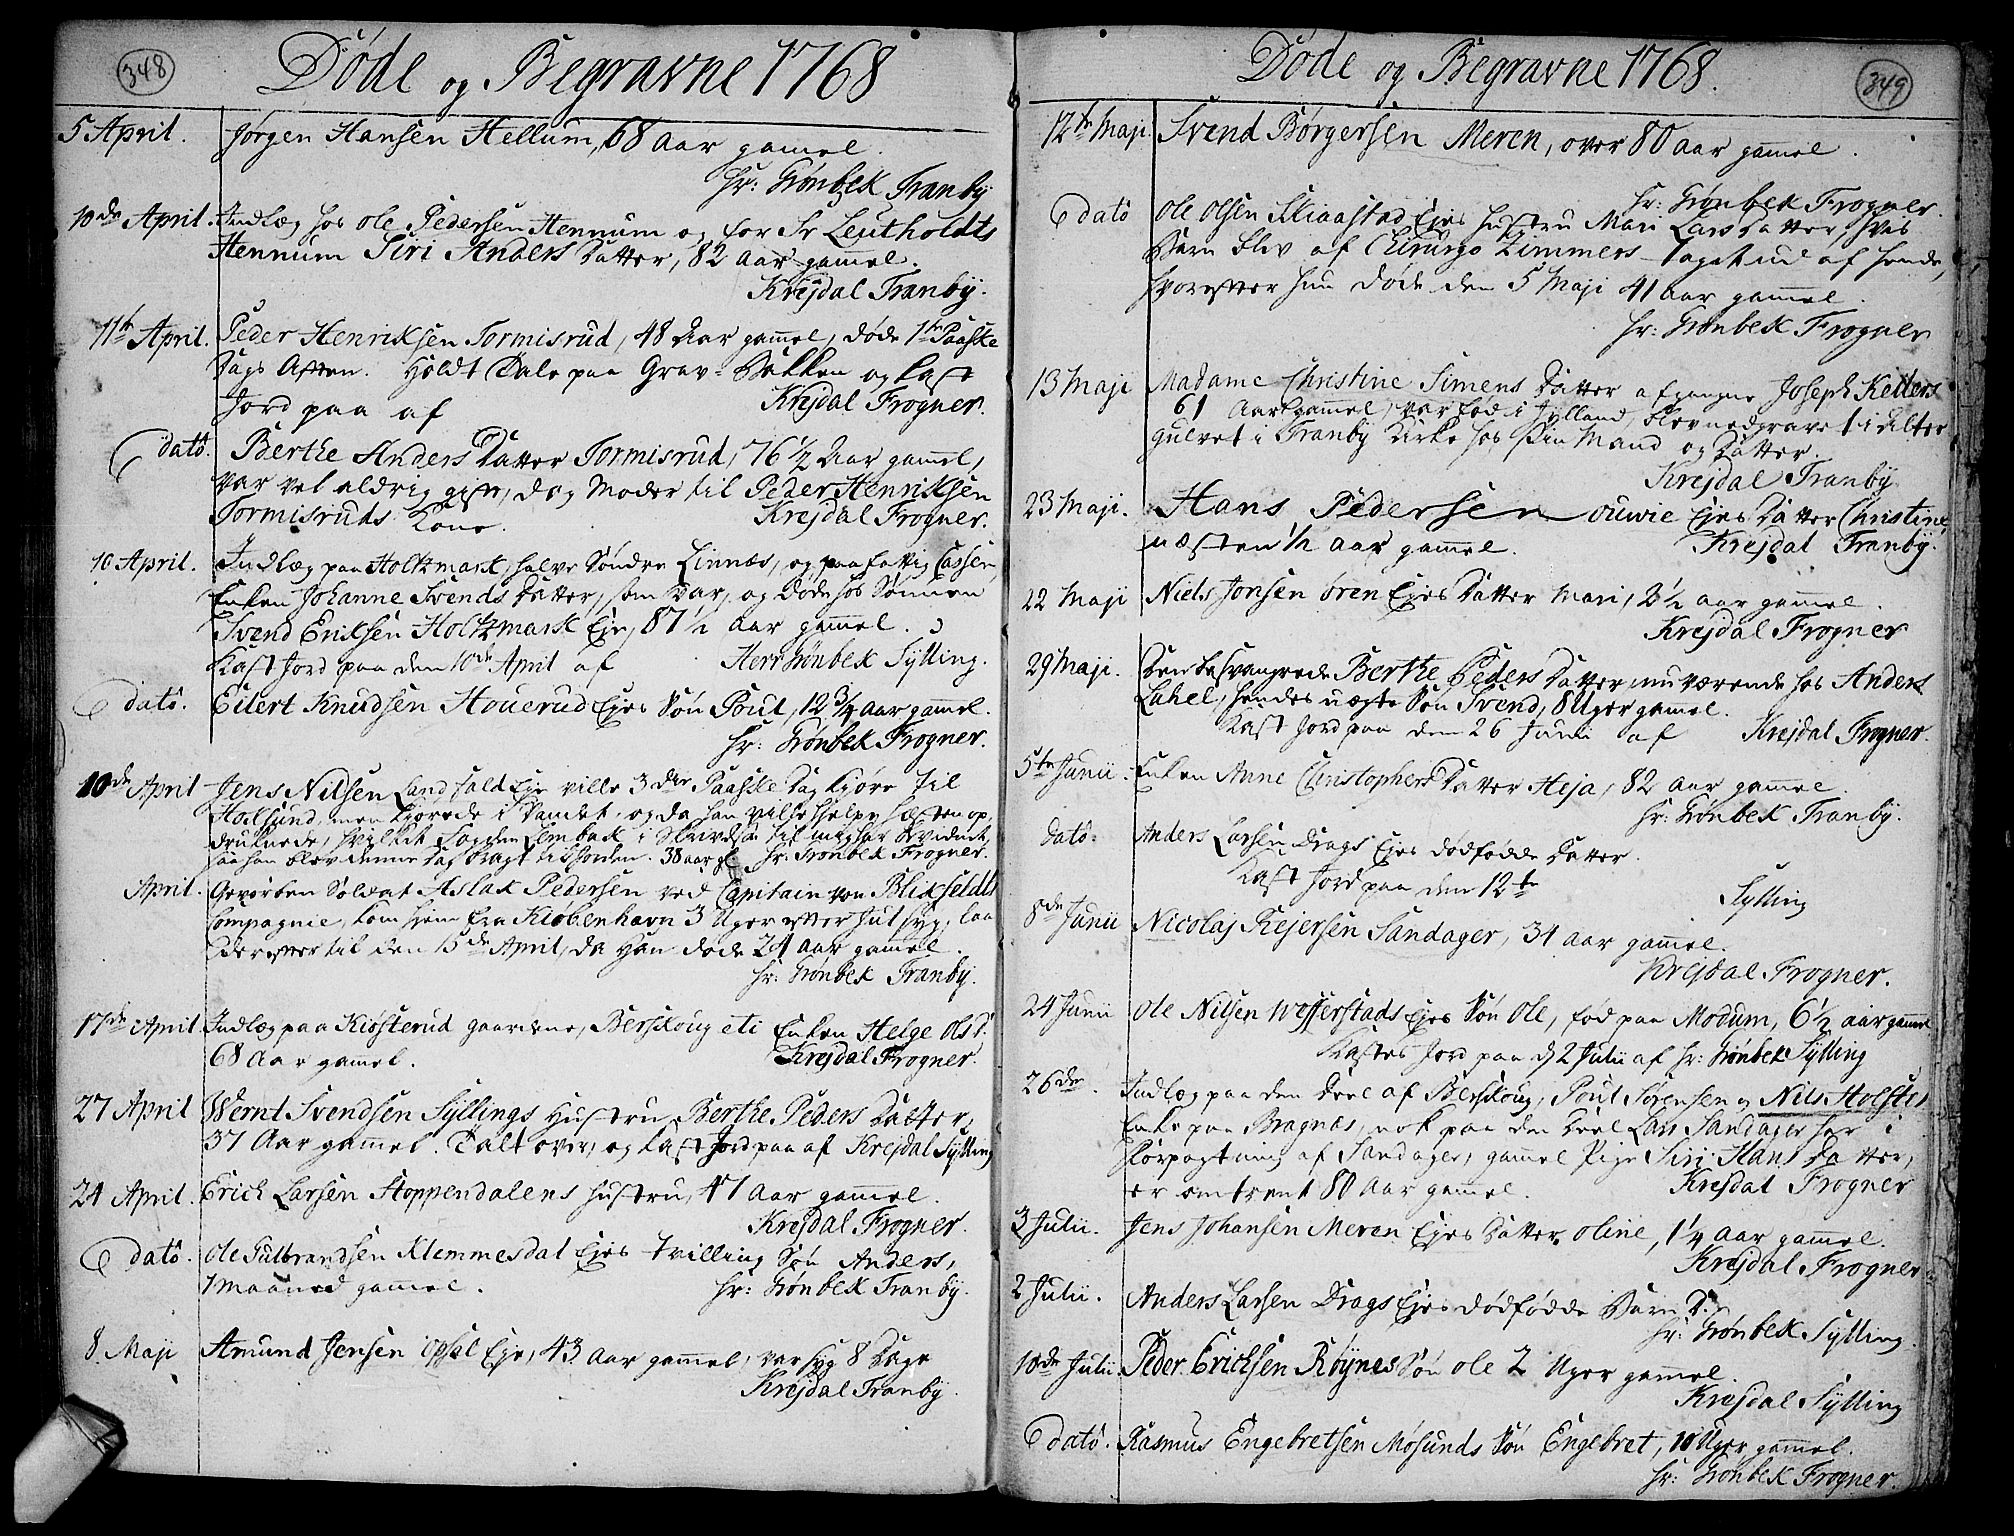 348
Døde og Begravne 1768
5 April. Jørgen Hansen Hellum, 68 Aar gamel.
Hr: Grønbek Tranby
10de April. Indlæg hos Ole Pedersen Hennum og for Sr Leutholdts
Hennum Siri Anders Datter, 82 Aar gamel.
Krejdal Tranby.
11te April. Peder Henriksen Tormisrud, 48 Aar gamel, døde 1te Paaske
Dags Aften. Holdt Tale paa Grav-Bakken og kast
Jord paa af Krejdal Frogner.
dato. Berthe Anders Datter Tormisrud, 76 1/2 Aar gamel,
var vel aldrig gift, dog Moder til Peder Henriksen
Tormisruds Kone. Krejdal Frogner.
10 April. Indlæg paa Holtzmark, halve Søndre Linnæs, og paa fattig Cassen,
Enken Johanne Svends Datter, som var og døde hos Sønnen
Svend Eriksen Holtzmark Eje, 87 1/2 Aar gamel.
Kast Jord paa den 10de April af Herr Grønbek Sylling.
dato. Eilert Knudsen Houerud Ejes Søn Poul, 12 3/4 Aar gamel.
Hr: Grønbek Frogner.
10de April Jens Nilsen Landfald Eje ville 3die Paaske Dag kjøre til
Holsund, men kjørede i Vandet, og da han ville hjelpe hæsten op,
druknede, hvilket Lembak i til mig har bevidnet,
saa han blev denne Dag bragt til Jorden. 38 aar gl. Hr: Grønbek Frogner.
April. Gevorben Soldat Aslak Pedersen ved Capitain von Blikfeldts
Compagnie, kom hjem fra Kiøbenhavn 3 Uger efter Jul syg, laa
derefter til den 15de April, da han døde 24 Aar gamel.
Hr: Grønbek Tranby.
17de April. Indlæg paa Kiosterud gaardene, Berskoug eti Enken Helge Ols D.
68 Aar gamel. Krejdal Frogner.
27 April Wernt Svendsen Syllings Hustru Berthe Peders Datter,
37 Aar gamel. Talt over, og kast Jord paa af Krejdal Sylling
24 April. Erich Larsen Stoppendalens Hustru, 47 Aar gamel.
Krejdal Frogner.
dato. Ole Gulbrandsen Klemmesdal Ejes tvilling Søn Anders,
1 maaned gamel. Hr: Grønbek Tranby.
8. Maji Amund Jensen Opsal Eje, 43 Aar gamel, var syg 8 Dage
Krejdal Tranby.
349
Døde og Begravne 1768.
12te Maji. Svend Børgersen Meren, over 80 aar gamel.
Hr: Grønbek Frogner.
dato Ole Olsen Skiaastad Ejes Hustru Mari Lars Datter, hvis
Barn blev af Chirurgo Zimmers taget ud af hende,
hvorefter hun døde den 5 Maji 41 aar gamel.
Hr: Grønbek Frogner
13 Maji Madame Christine Simens Datter afgangne Joseph Kellers
61 Aar gamel, var fød i Jylland, blev nedgravet i Alter
gulvet i Tranby Kirke hos sin Mand og Datter.
Krejdal Tranby.
23 Maji. Hans Pedersen ouwie Ejes Datter Christine
næsten 1/2 aar gamel. Krejdal Tranby.
22 Maji Niels Jonsen øren Ejes Datter Mari, 2 1/2 aar gamel.
Krejdal Frogner
29 Maji. Den besvangrede Berthe Peders Datter, nuværende hos Anders
Lahel, hendes uægte Søn Svend, 8 Uger gamel.
Kast Jord paa den 26 Junii af Krejdal Frogner.
5te Junii. Enken Anne Christophers Datter Heja, 82 aar gamel.
Hr: Grønbek Tranby.
dato. Anders Larsen Drags Ejes dødfødde Datter.
Kast Jord paa den 12te Sylling
8de Junii Nicolaj Rejersen Sandager, 34 aar gamel.
Krejdal Frogner.
24 Junii Ole Nilsen Wefferstads Ejes Søn Ole, fød paa Modum, 6 1/2 aar gamel
Kastes Jord paa d 2 Julii af Hr: Grønbek Sylling
26de. Indlæg paa den Deel af Berskoug, Poul Sørensen og Nils Holsts
Enke paa Bragnæs, nok paa den Deel Lars Sandager har i
Forpagtning af Sandager, gamel Pige Siri Hans Datter,
er omtrent 80 Aar gamel. Krejdal Frogner
3 Julii. Jens Johansen Meren Ejes Datter Oline, 1 1/4 Aar gamel.
Krejdal Frogner
2 Julii. Anders Larsen Drags Ejes dødfødde Barn D.
Hr: Grønbek Sylling.
10de Julii. Peder Erichsen Røynes Søn Ole 2 Uger gamel.
Krejdal Sylling
dato. Rasmus Engebretsen Møsunds Søn Engebret, 10 Uger gamel.
Hr: Grønbek Frogner.